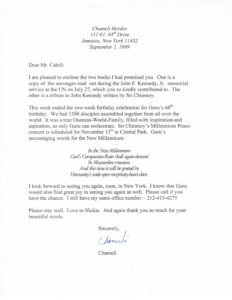 Chameli Hordes
151-01 84th Drive
Jamaica, New York 11432
September 1, 1999
Dear Mr. Cahill:
I am pleased to enclose the two books I had promised you. One is a
copy of the messages read out during the John F. Kennedy, Jr. memorial
service at the UN on July 27, which you so kindly contributed to. The
other is a tribute to John Kennedy written by Sri Chinmoy.
This week ended the two-week birthday celebration for Guru's 68th
birthday. We had 1500 disciples assembled together from all over the
world. It was a true Oneness-World-Family, filled with inspiration and
aspiration, as only Guru can orchestrate. Sri Chinmoy's Millennium Peace
concert is scheduled for November 13th in Central Park. Guru's
encouraging words for the New Millennium:
In the New Millennium
God's Compassion-Rain shall again descend
In measureless measure
And this time it will be greeted by
Humanity's wide-open receptivity-heart-door.
I look forward to seeing you again, soon, in New York. I know that Guru
would also find great joy in seeing you again as well. Please call if you
have the chance. I still have my same office number – 212-415-4275
Please stay well. Love to Nickie. And again thank you so much for your
beautiful words.
Sincerely,
Chameli
Chameli